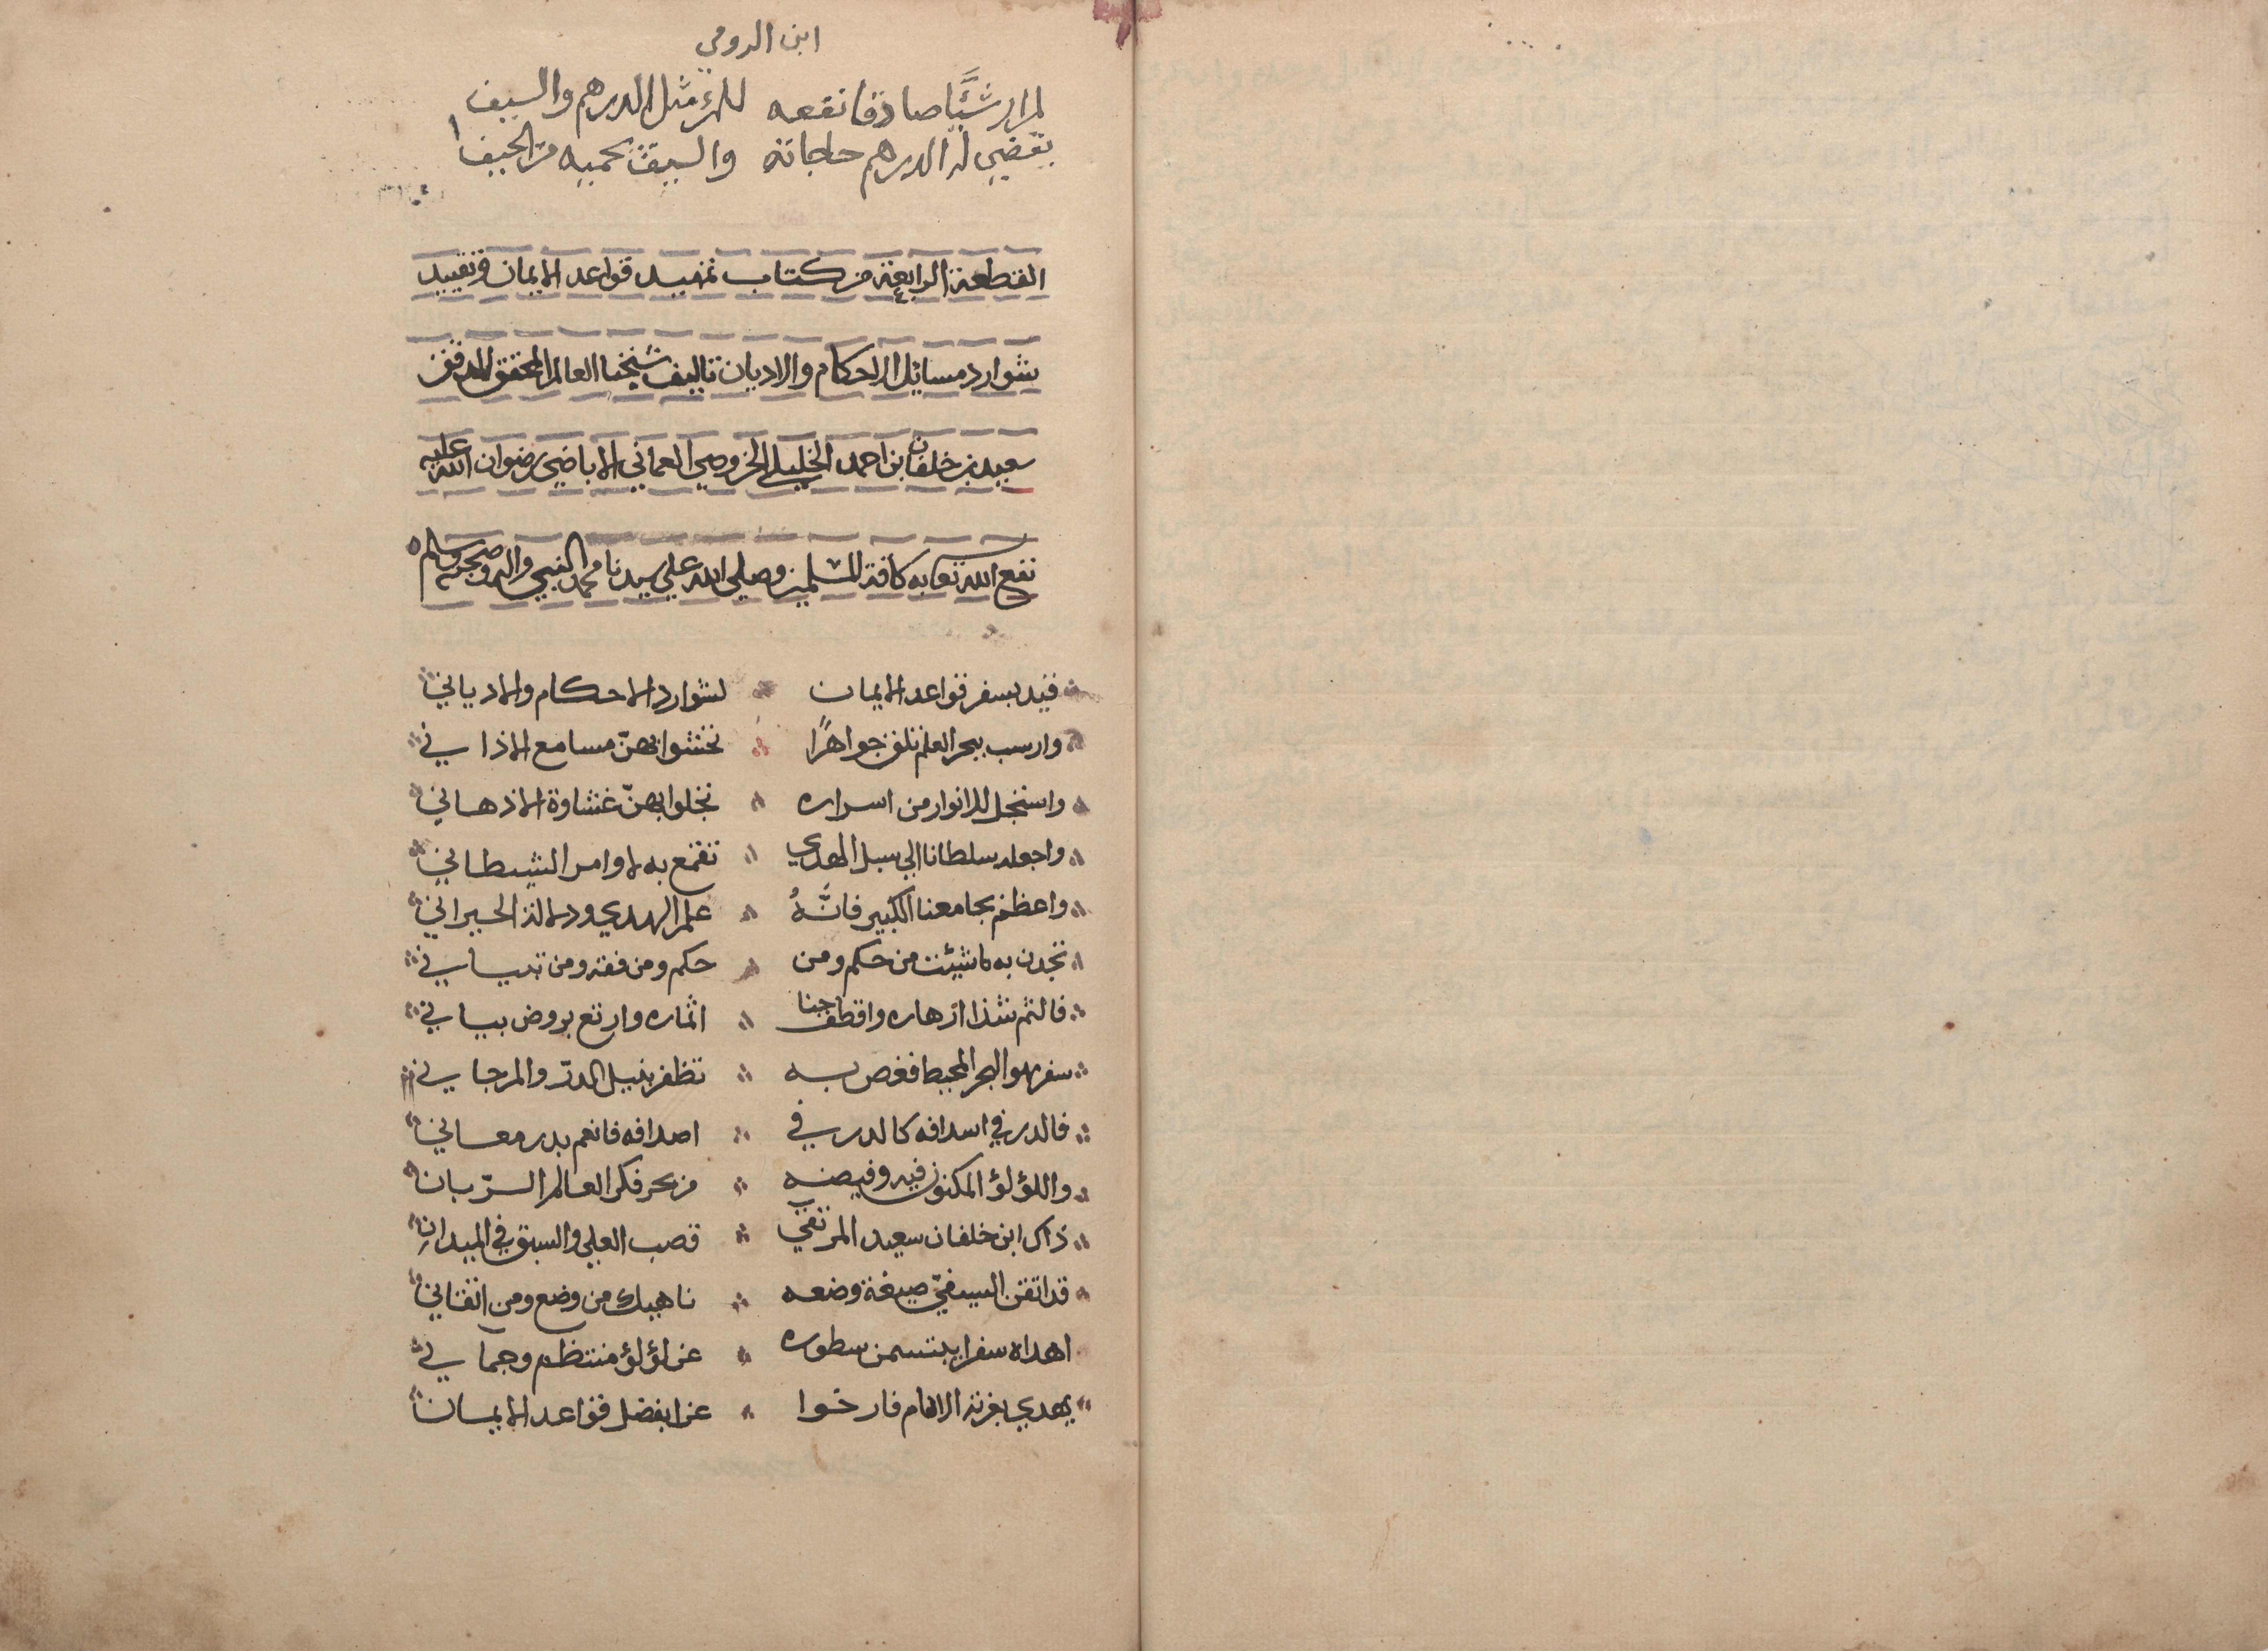 ابن الرومي
لم ار شيئًا صادقا نفعه للمرء مثل الدرهم والسيف
يقضي له الدرهم حاجاته والسيف يحميه من الحيف
القطعة الرابعة من كتاب تمهيد قواعد الايمان وتقييد
شوارد مسائل الاحكام والاديان تاليف شيخنا العالم المحقق المدقق
سعيد بن خلفان بن احمد الخليلي الخروصي العماني الاباضي رضوان الله عليه
نفع الله تعا به كافة المسلمين وصلى الله علي سيدنا محمد النبي واله وصحبه وسلم
قيد بسفر قواعد الايمان لشوارد الاحكام والاديان
وارسب ببحر العلم تلق جواهرًا تحشوا بهنّ مسامع الاذان
واستجل للانوار من اسراره تجلوا بهنّ غشاوة الاذهان
واجعله سلطانا الي سبل الهدي تقمع به لاوامر الشيطان
واعظم بجامعنا الكبير فانَّهُ علم الهدي ودلالة الحيران
تجدن به ما شئت من حكم ومن حكم ومن فقه ومن تبيان
فالثم شذا ازهاره واقطف جنا اثماره وارتع بروض بيان
سفر هو البحر المحيط فغص به تظفر بنيل الدرّ والمرجان
فالدر في اسدافه كالدر في اصدافه فانعم بدر معاني
واللؤلؤ المكنون فيه وفيضه من بحر فكر العالم الرّبان
ذاك ابن خلفان سعيد المرتقي قصب العلي والسبق في الميدان
قد اتقن السيفيّ صيغة وضعه ناهيك من وضع ومن اتقان
اهداه سفرا يبتسمن سطوره عن لؤلؤ منتظم وجمان
يهدي بغرته الانام فارخوا عن ابفضل قواعد الايمان